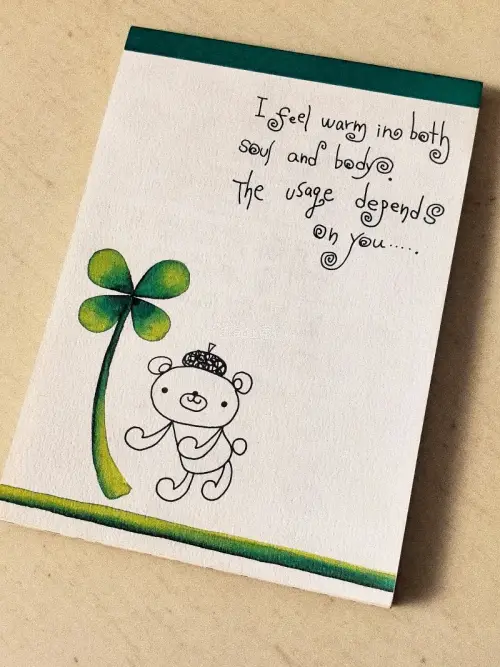 I feel warm in both
soul and body.
The usage depends
on you.....